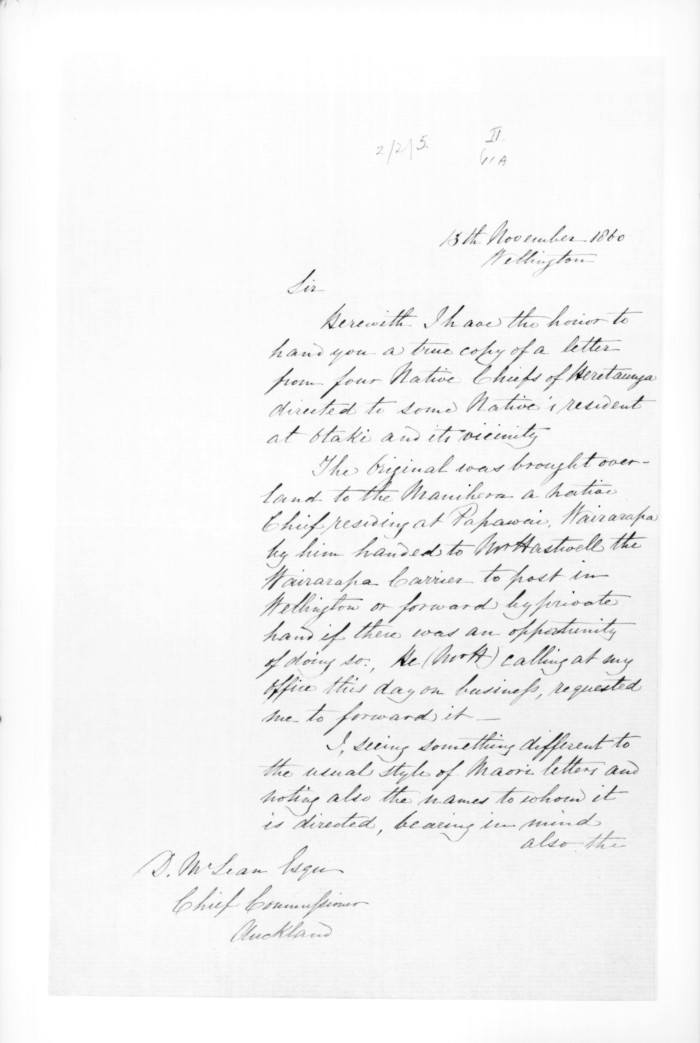 2/2/5.
II.
15th November 1860
Wellington
Sir
Herewith I have the honor to
hand you a true copy of a letter
from four Native Chiefs of Heretaunga
directed to some Native's resident
at Otaki and its vicinity
The Original was brought over-
land to the Manihera a native
Chief residing at Papawai, Wairarapa
by him handed to Mr Hastwell the
Wairarapa Carrier to post in
Wellington or forward by private
hand if there was an opportunity
of doing so., He (Mr H) calling at my
Office this day on business, requested
me to forward it —
I, seeing something different to
the usual style of Maori letters and
noting also the names to whom it
is directed, bearing in mind
also the
D. McLean Esqu
Chief Commissioner
Auckland